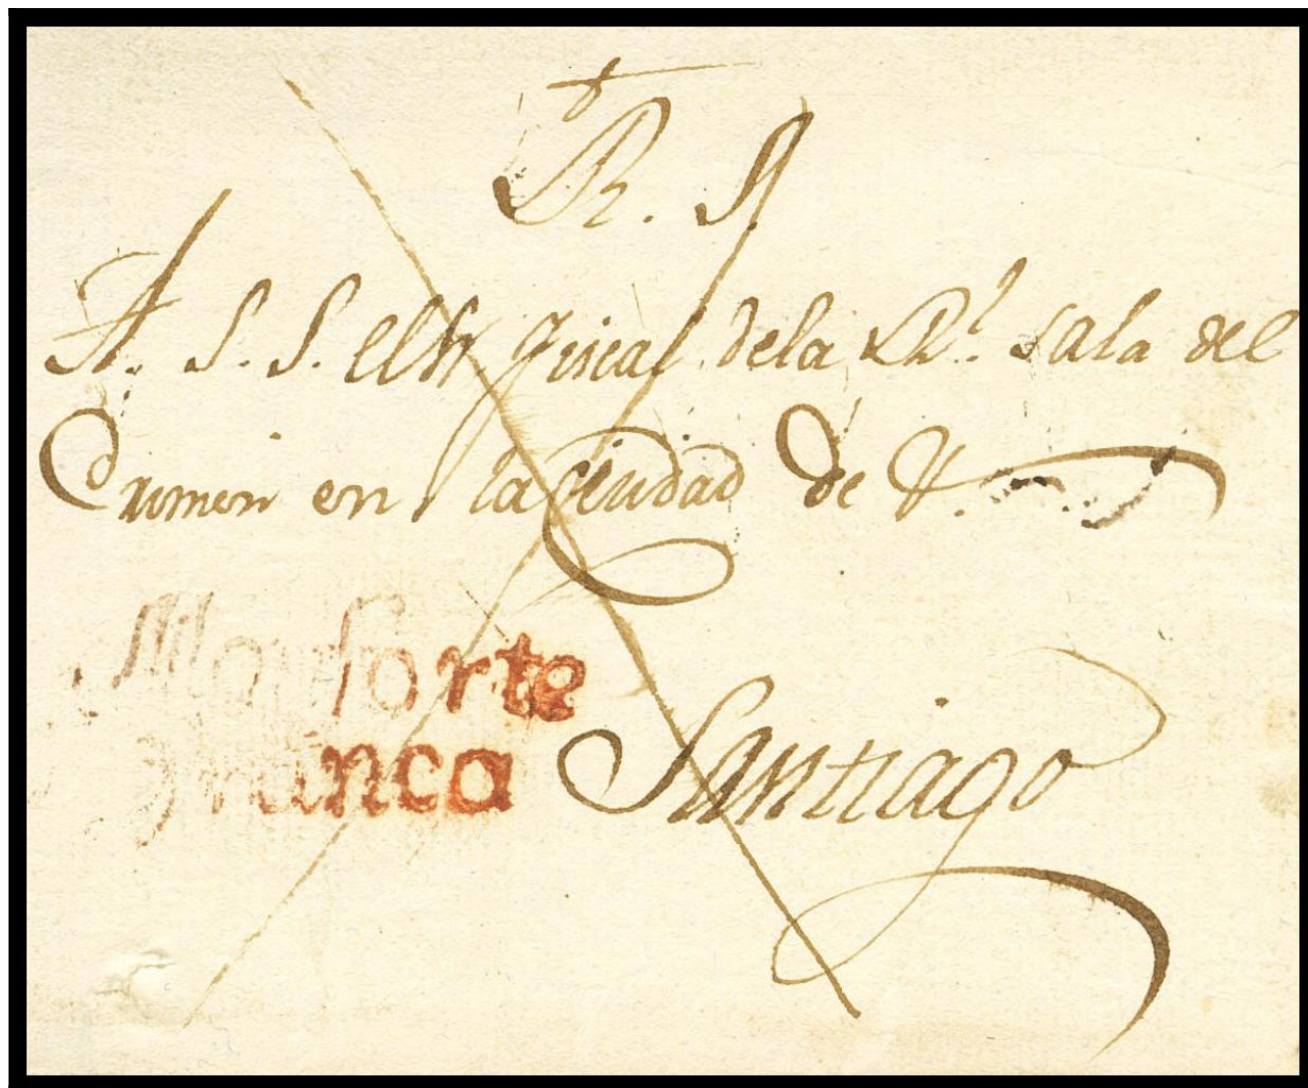 R. S.
A. S. S. el Sr. Fiscal de la Rl. Sala del
Crimen en la ciudad de
Monforte
Franca
Santiago